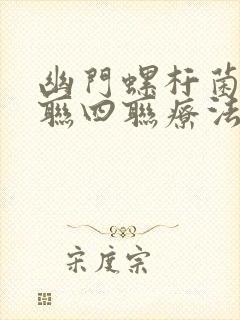 幽門螺杆菌
聯四聯療法
宋度宗